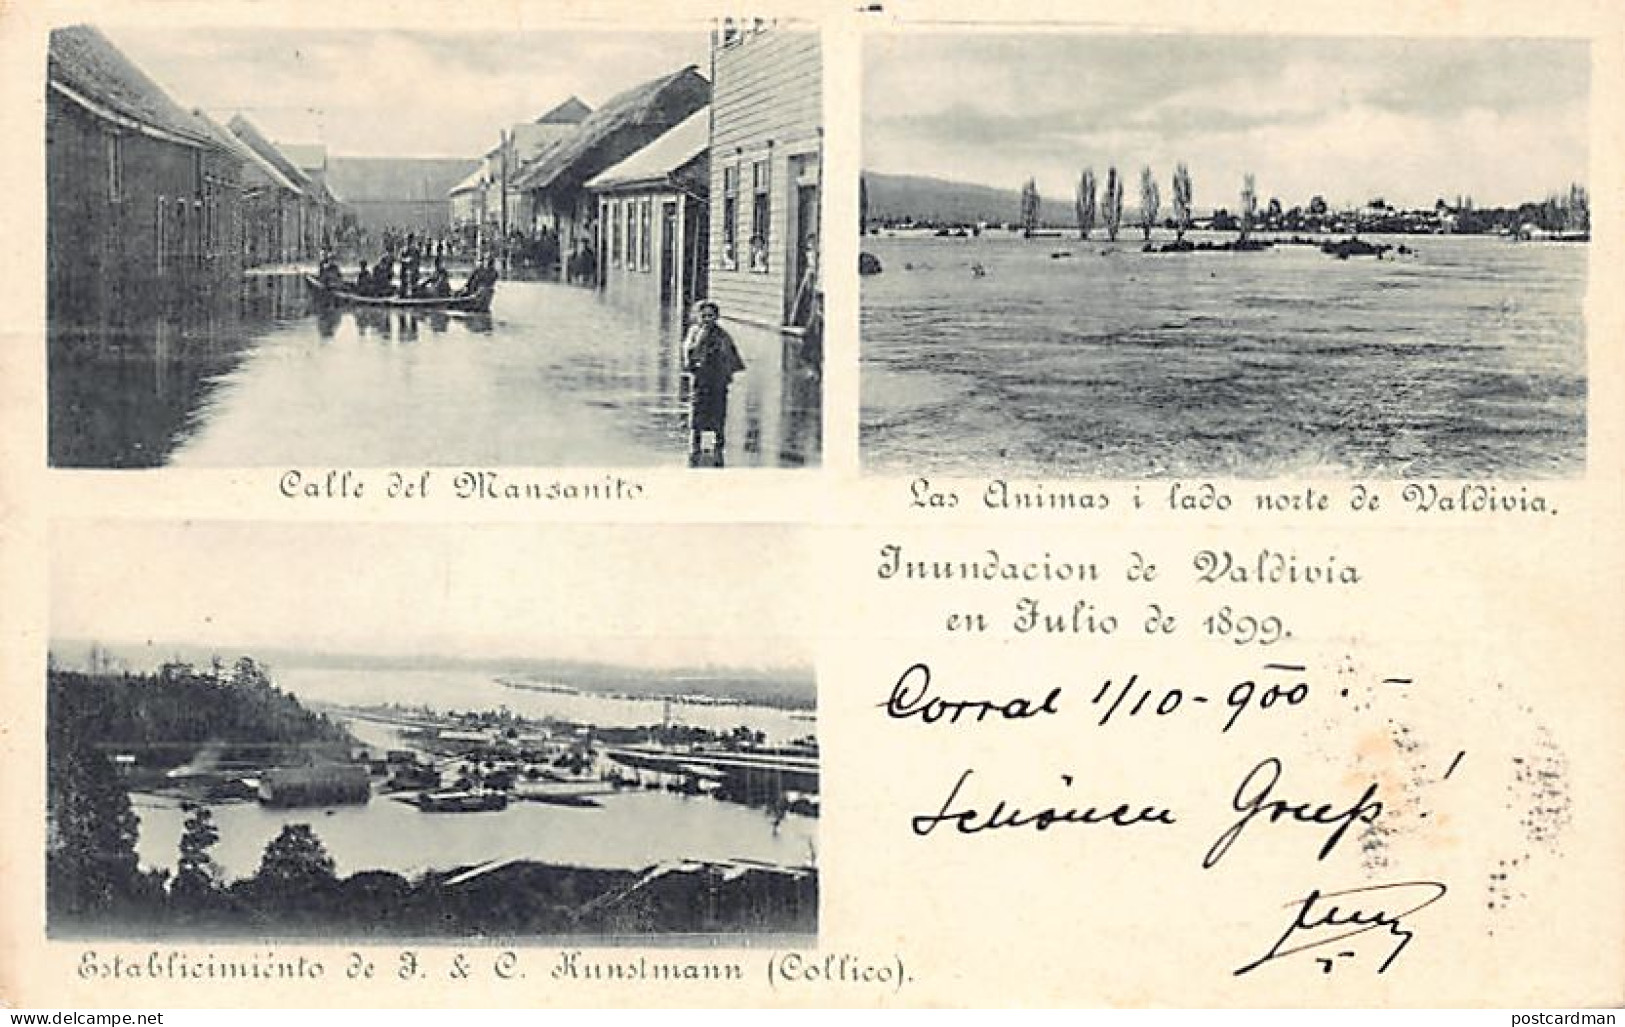 Calle del Mansanito
Las Animas i lado norte de Valdivia.
Inundacion de Valdivia
en Julio de 1899.
Corral 1/10-900.-
Schönen Gruß!
Establicimiénto de F. & C. Kunstmann (Collico).
delcampe.net
postcardman